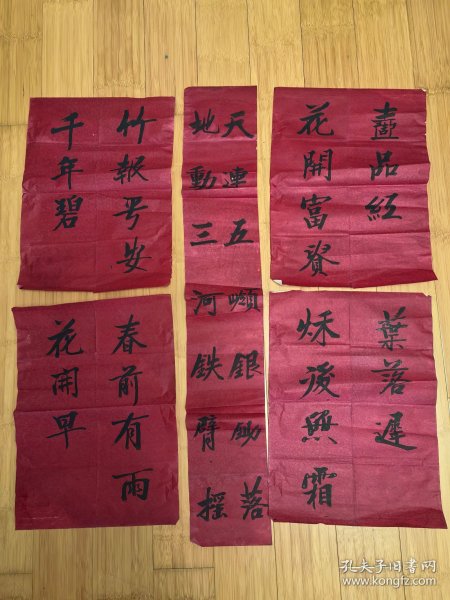 竹報号安
千年碧
天連五嶺銀鋤落
地動三河铁臂摇
品紅
花開富貴
春前有雨
花開早
葉落遲
秋後無霜
孔夫子旧书网
www.kongfz.com